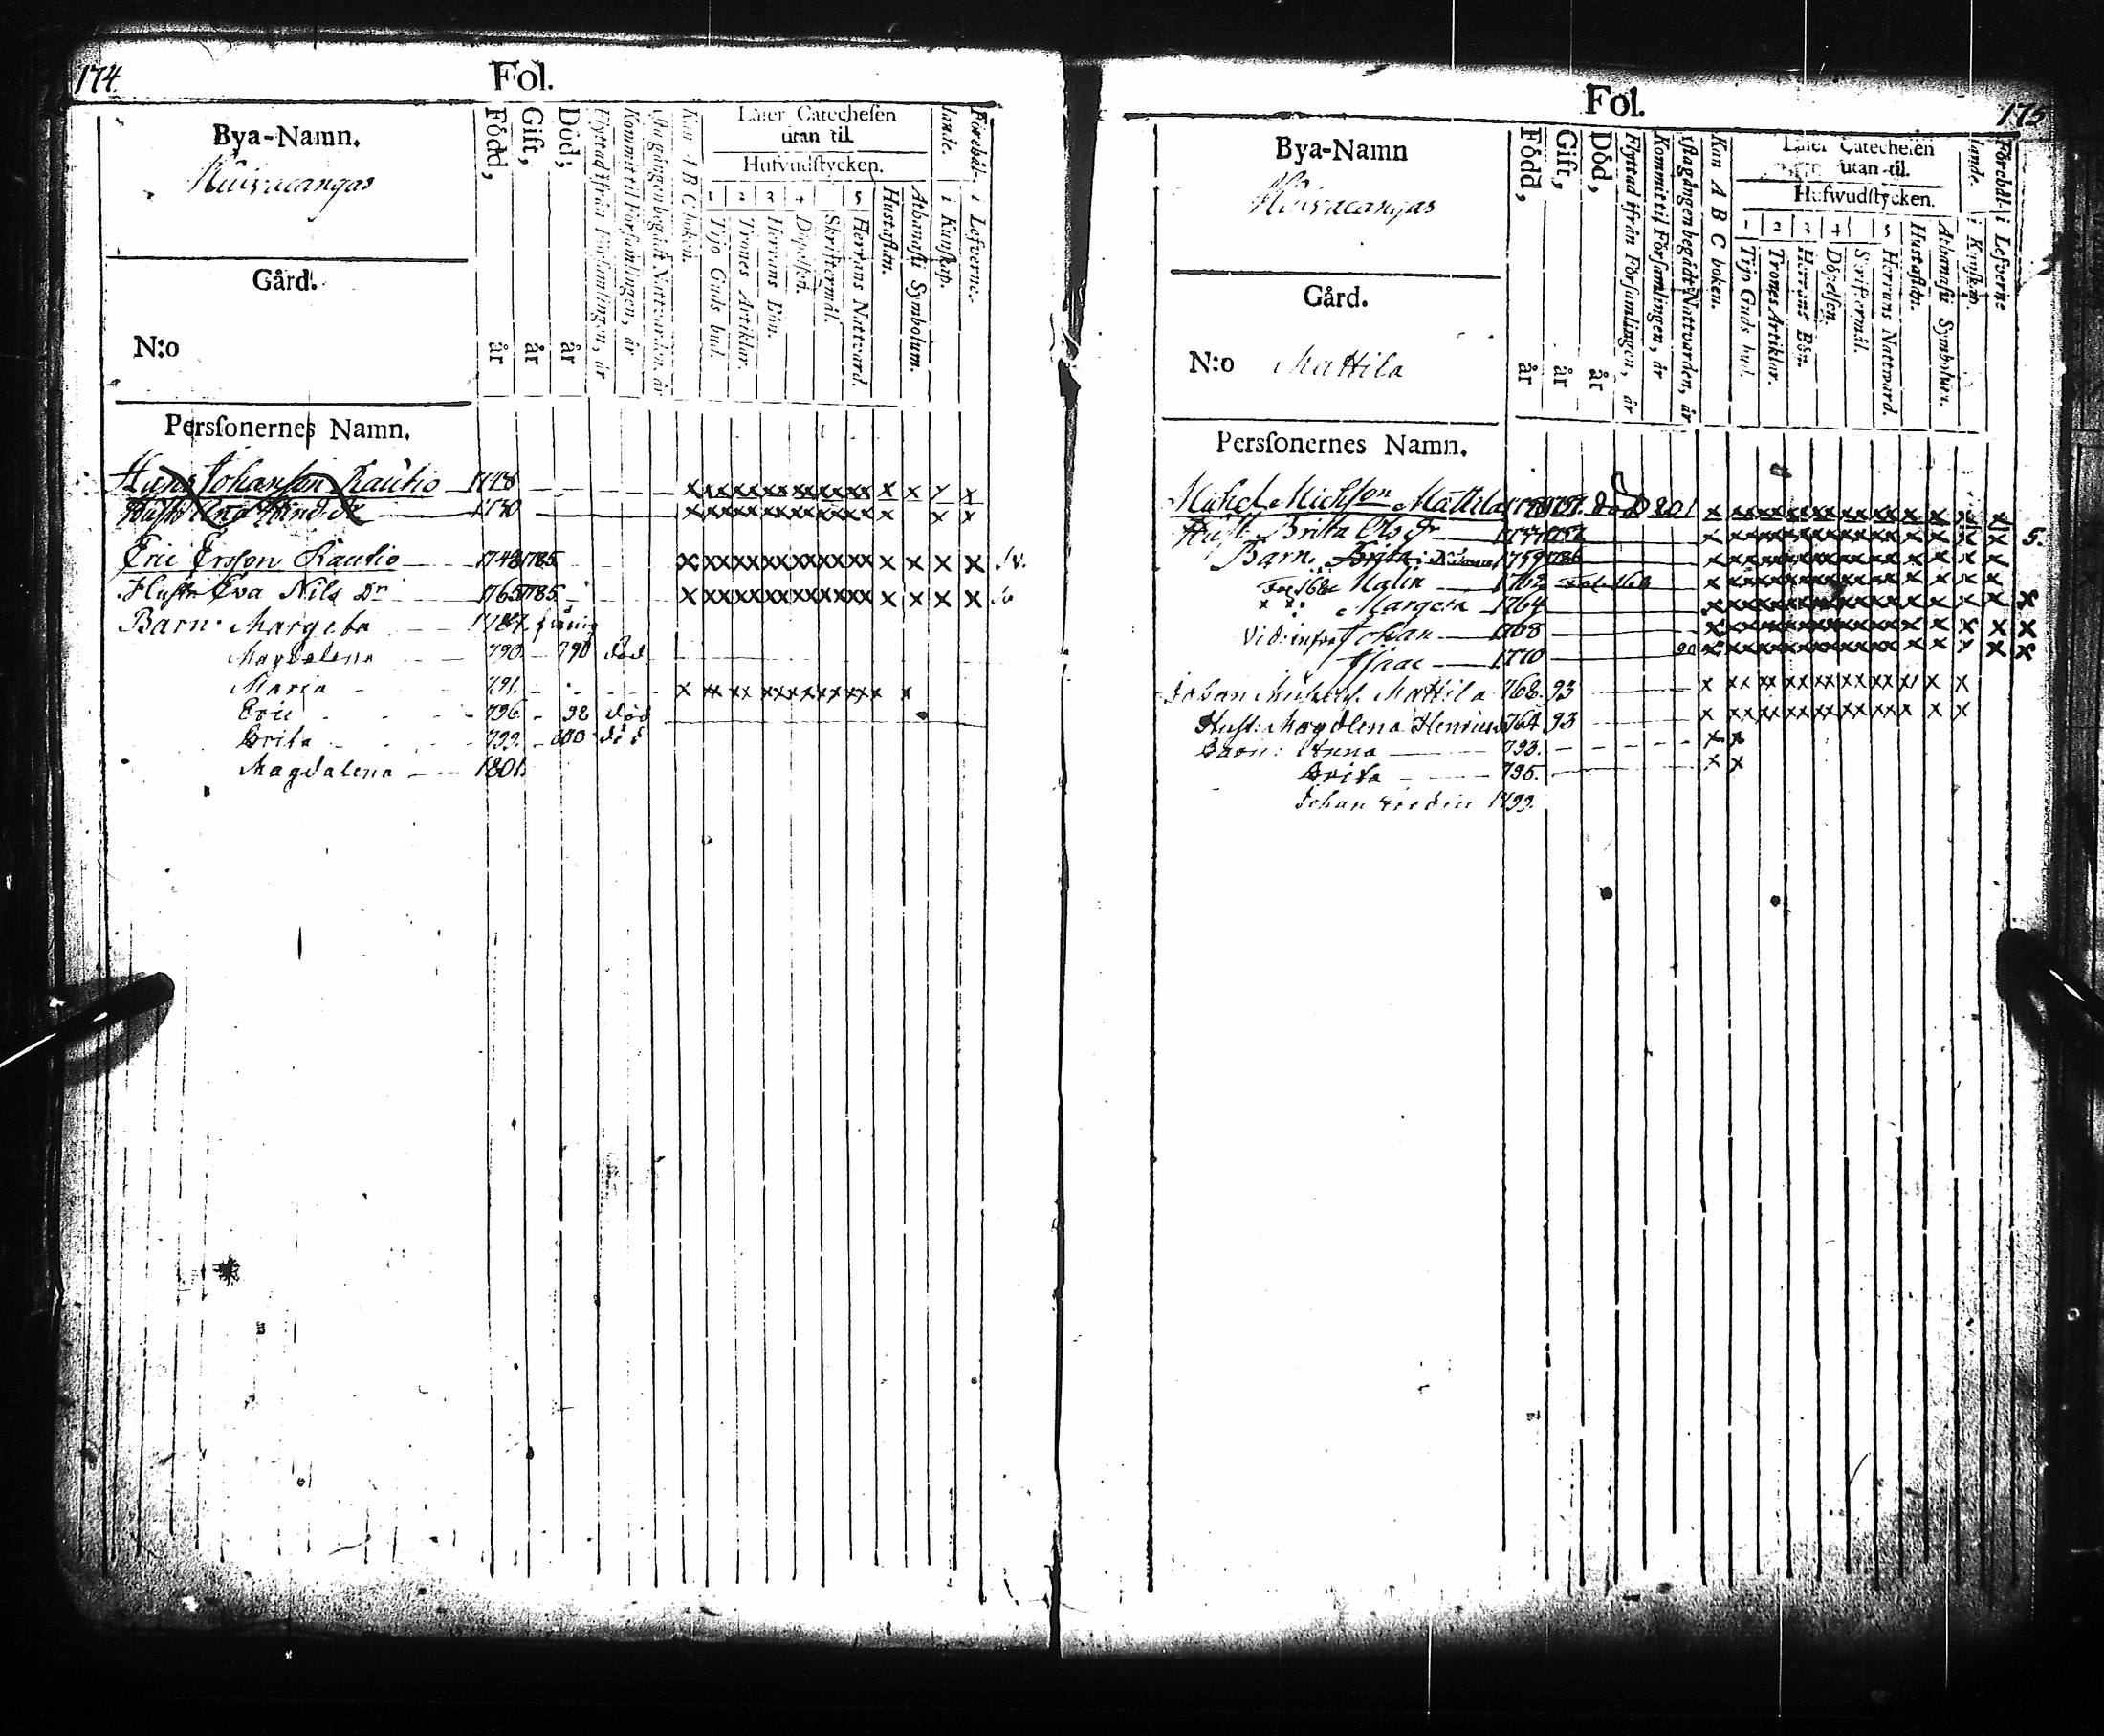 174.
Fol.
Bya-Namn.
Kuivacangas
Gård.
N:o
Född, år
Gift, år
Död, år
Flyttad ifrån Församlingen, år
Kommit til Församlingen, år
Kan A B C boken.
Läser Catechesen
utan til.
Hufvudstycken.
1 2 3 4 5
Tijo Guds bud.
Trones Artiklar.
Herrans Bön.
Döpelsen.
Skriftermål.
Herrans Nattvard.
Hustaflan.
Athanasii Symbolum.
Förehållande.
i Kunskap.
i Lefverne.
Personernes Namn.
Hans Johansson Rautio 1718
Hustr 1730
Eric Ersson Rautio 1748 1785
Hustr Eva Nils dr 1765 1785
Barn: Margeta 1787
Magdalena 790 790 död
Maria 791.
Eric 796 98 död
Brita 799 800 död
Magdalena 1801
175
Fol.
Bya-Namn
Kuivacangas
Gård.
N:o Mattila
Född, år
Gift, år
Död, år
Flyttad ifrån Församlingen, år
Kommit til Församlingen, år
första gången begådt Nattvarden, år
Kan A B C boken.
Läser Catechesen
utan til.
Hufwudstycken.
1 2 3 4 5
Tijo Guds bud.
Trones Artiklar.
Herrans Bön.
Döpelsen.
Scriftermål.
Herrans Nattvard.
Hustaflan.
Athanasii Symbolum.
Förehållande.
i Kunskap.
i Lefverne
Personernes Namn.
Michel Michson Mattila död 801
Hust. Brita Ols dr 5.
Barn. Brita 1759 1786
Malin 1762
Margeta 1764
Vid: infra Johan 1768
Isaac 1770
Johan Michels. Mattila 768. 93
Hust: Magdlena Henrics 764 93
Barn: Anna 793.
Brita 795.
Johan 1799.